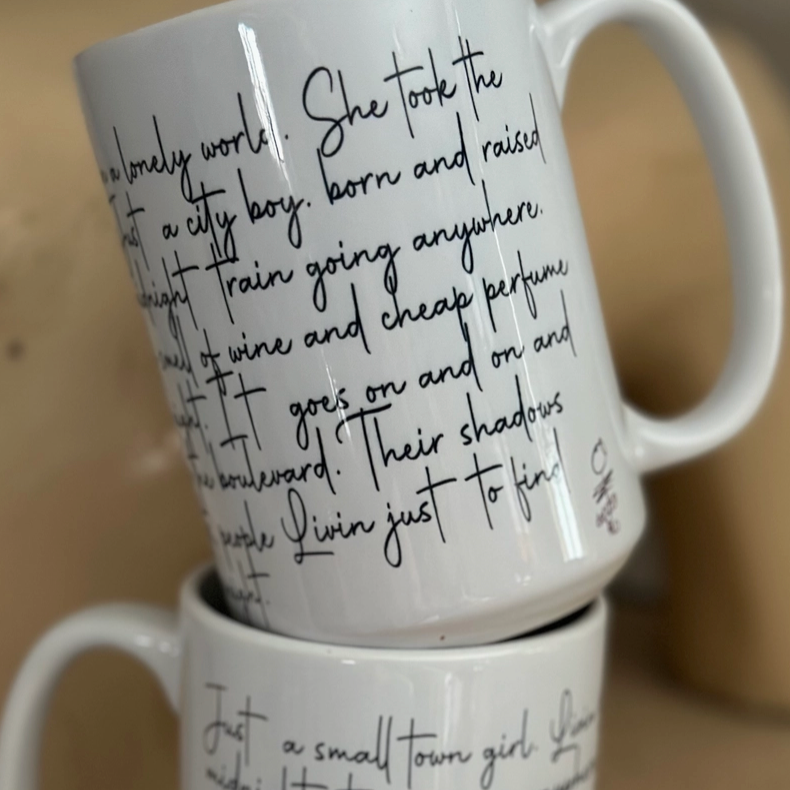 a lonely world. She took the
Just a city boy. born and raised
midnight train going anywhere.
smell of wine and cheap perfume
night. It goes on and on and
the boulevard. Their shadows
people Livin just to find
night.
Just a small town girl. Livin
midnight